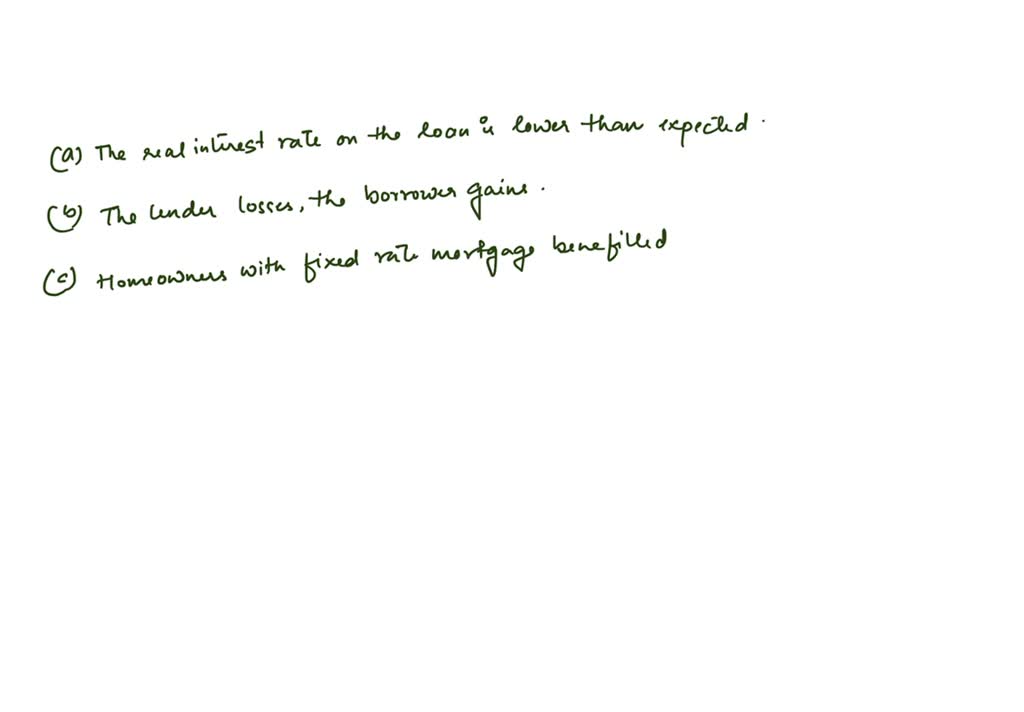 (a) The real interest rate on the loan is lower than expected.
(b) The lender losses, the borrower gains.
(c) Homeowners with fixed rate mortgage benefitted